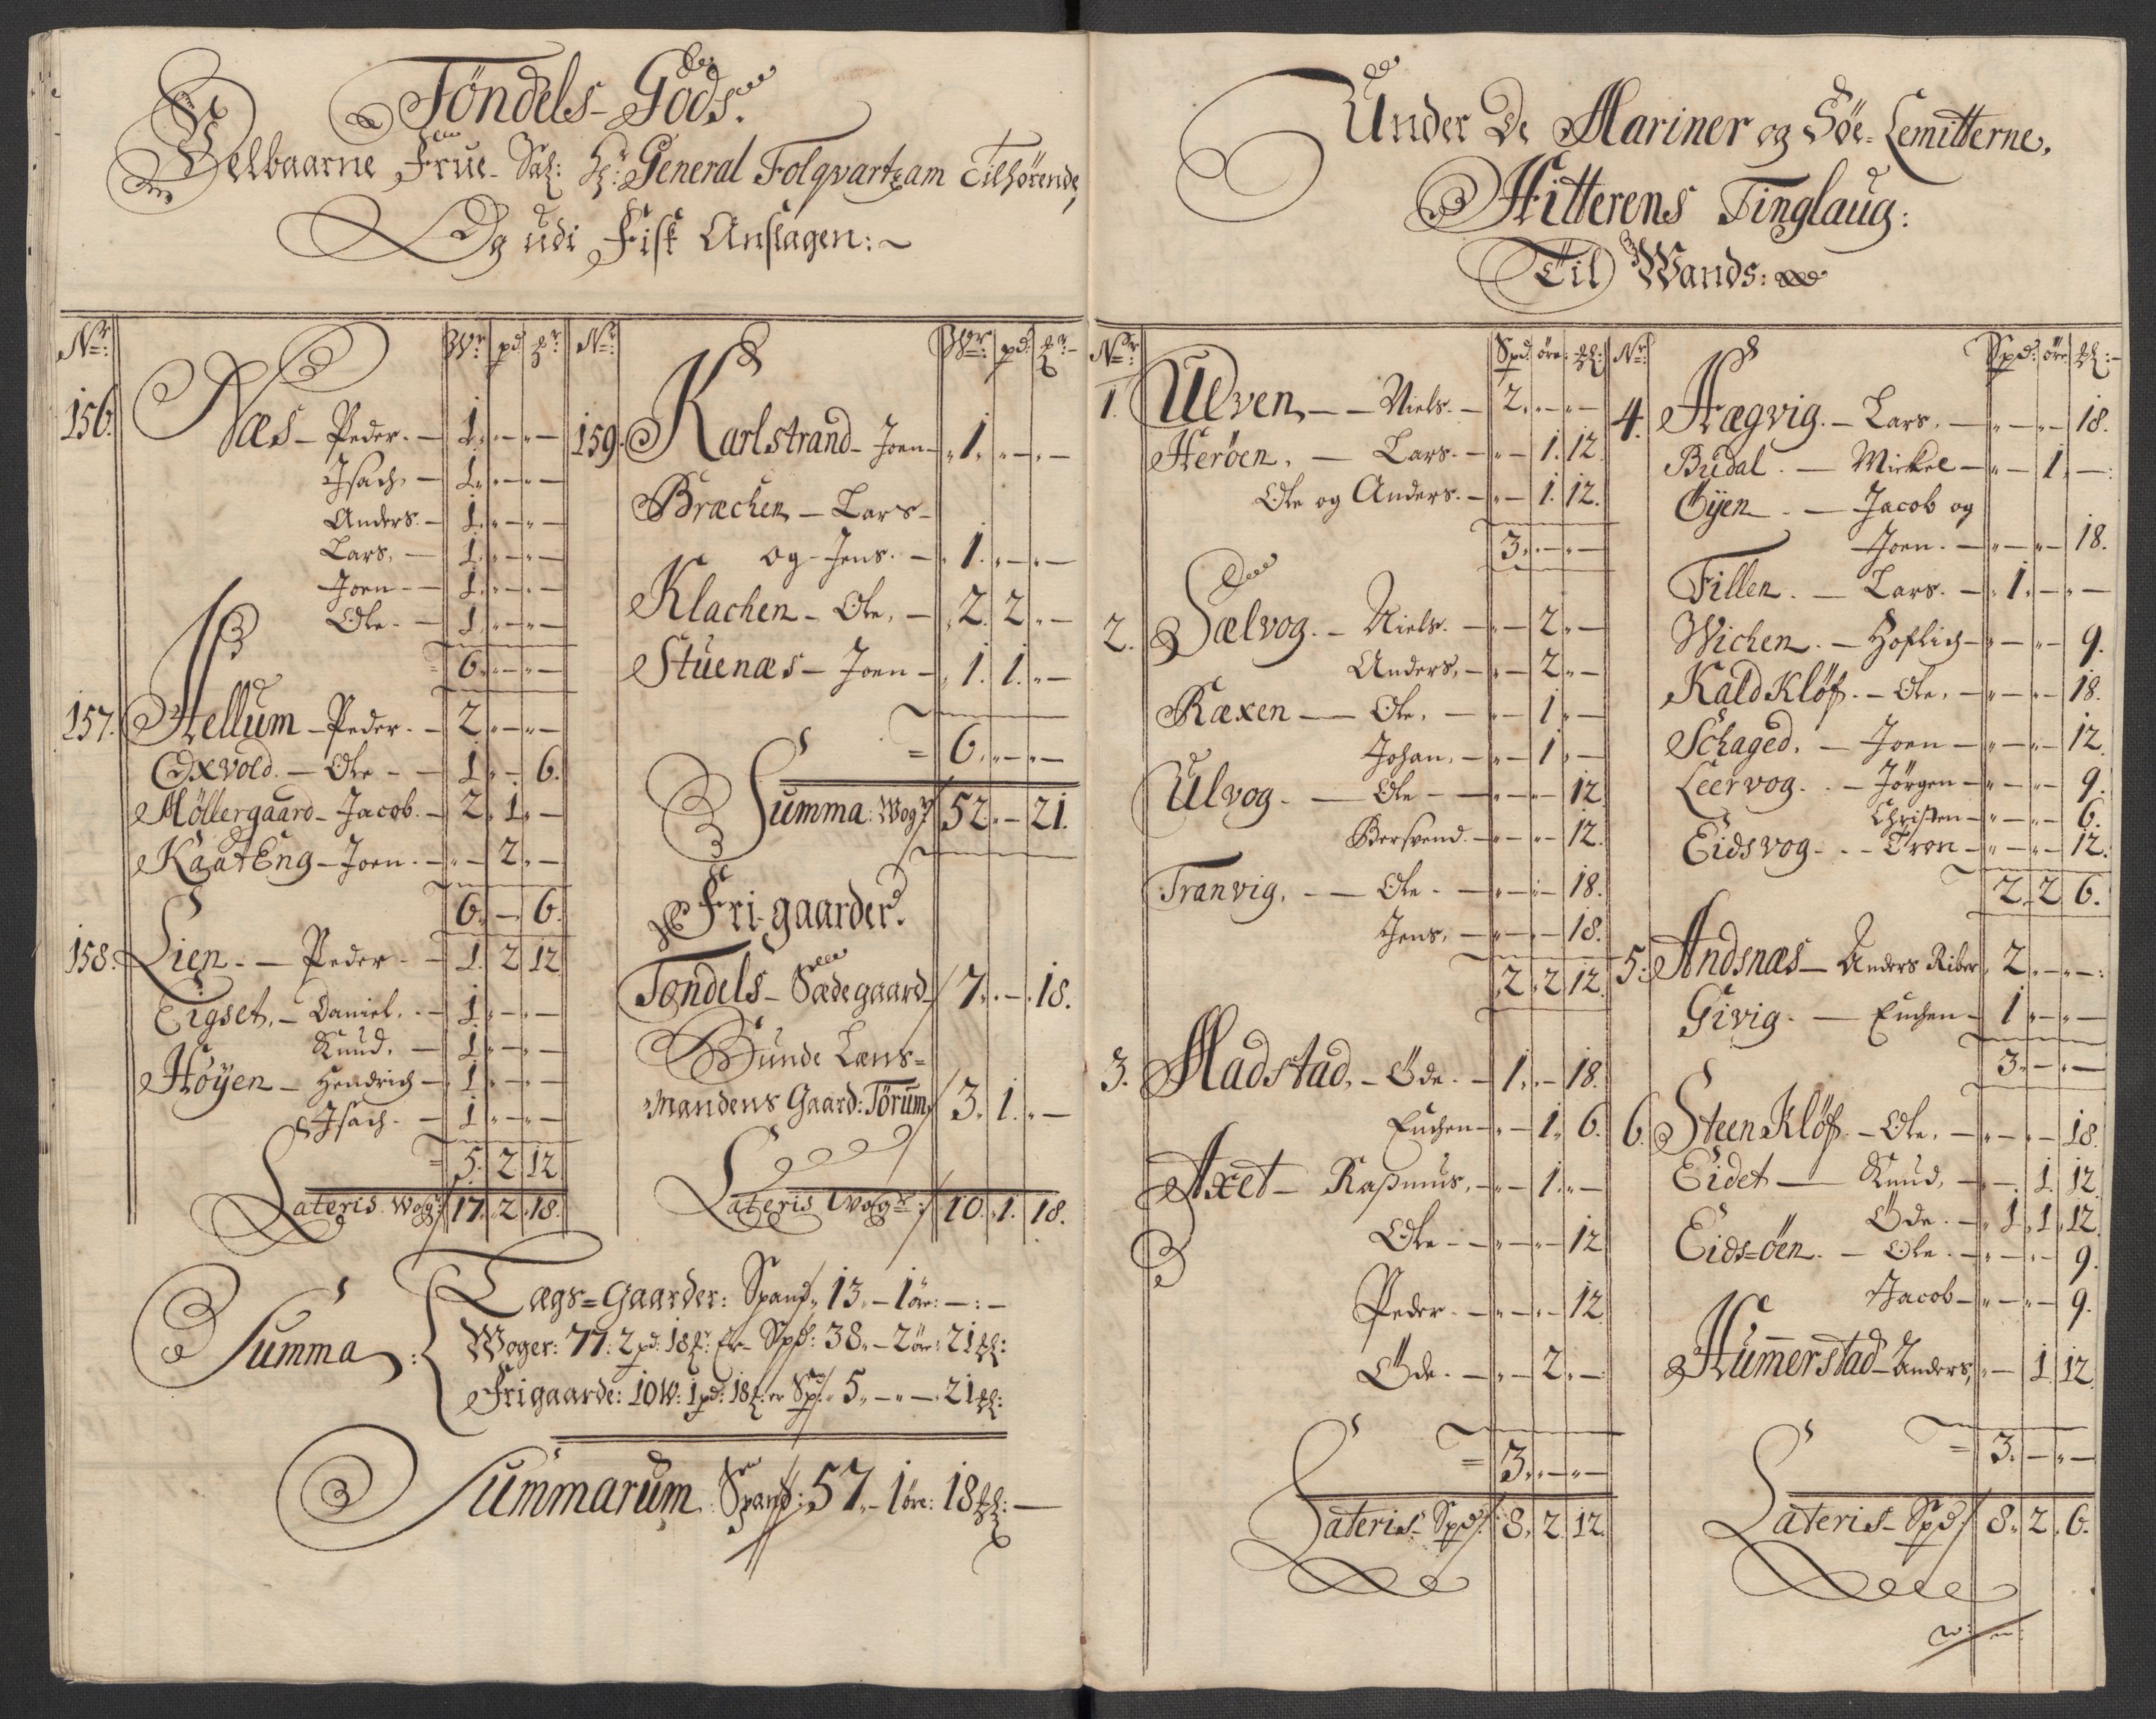 Töndels-Gods.
Velbaarne Frue Sal: Hr: General Folqvartzam Tilhørende,
Og udi Fisk Anslagen: ~
Nr: Wr: pd: Nr: Wr: pd:
156. Næs - Peder. - 1. " - " -
Isach. - 1. " - " -
Anders. - 1. " - " -
Lars. - 1. " - " -
Joen - 1. " - " -
Ole. - 1. " - " -
6. " - " -
157. Hellum - Peder. - 2 " - " -
Oxvold. - Ole - 1. " - 6.
Möllergaard - Jacob. - 2. 1. " -
KaatEng - Joen. - " - 2. " -
6. - 6.
158. Lien. - Peder - 1. 2 12
Eigset. - Daniel. - 1. " - " -
Knud. - 1. " - " -
Höyen - Hendrich - 1. " - " -
Isach. - 1. " - " -
5. 2 12
Lateris Wogr: 17. 2. 18.
159. Karlstrand - Joen - 1. " - " -
Bræchen - Lars -
og - Jens. - 1. " - " -
Klachen - Ole. - 2. 2. " -
Stuenæs - Joen - 1. 1. " -
= 6. " - " -
Summa: Wogr 52. " - 21.
Fri-gaarder.
Tøndels - Sædegaard 7. " - 18.
Bunde Læns=
mandens Gaard: Törum, 3. 1. " -
Lateris Wogr: 10. 1. 18.
Summa:
Lægs=Gaarder: Spand 13. - 1 öre: - : -
Woger: 77: 2 pd: 18 Er Spd: 38. - 2 öre: 21
Frigaarde: 10 W: 1 pd: 18 er Spd: 5. - " - 21
Summarum Spand: 57. - 1 öre: 18 -
Under De Mariner og Söe-Lemitterne,
Hitterens Tinglaug:
Til Wands:
Nr: Spd: öre: Nr: Spd: öre
1. Ulven - - Niels. - 2. " - " -
Heröen. - Lars. - " - 1. 12.
Ole og Anders. - " - 1. 12.
3. " - " -
2. Sælvog. - Niels. - " - 2. " -
Anders. - " - 2 " -
Ræxen - Ole. - " - 1 " -
Johan. - " - 1 " -
Ulvog. - Ole - " - " - 12
Bersvend. - " - " - 12.
Tranvig. - Ole - " - " - 18.
Jens. - " - " - 18.
2. 2 12.
3. Madstad. - Öde. - 1. " - 18.
Euchen - " - 1. 6.
Axet - Rasmus. - " - 1. " -
Ole - " - " - 12
Peder. - " - " - 12
Öde. - " - 2. " -
= 3. " - " -
Lateris Spd: 8. 2 12.
4. Hægvig. - Lars. - " - " - 18.
Budal. - Mickel - " - 1. -
Öyen. - Jacob og
Joen. - " - " - 18.
Fillen. - Lars. - 1. " - " -
Wichen. - Hoflich - " - " - 9.
KaldKlöf. - Ole. - " - " - 18.
Schaged. - Joen - " - " - 12.
Leervog. - Jörgen - " - " - 9.
Christen - " - " - 6.
Eidsvog. - Tron - " - " - 12.
2. 2 6.
5. Andsnæs - Anders Riber 2. " - " -
Givig. - Euchen - 1 " - " -
3. " - " -
6. SteenKlöf. - Ole. - " - " - 18.
Eidet - Knud. - " - 1. 12
Öde. - 1. 1. 12
Eids=öen. - Ole. - " - " - 9.
Jacob - " - " - 9.
Humerstad - Anders, " - 1 12.
= 3. " - " -
Lateris - Spd 8. 2. 6.